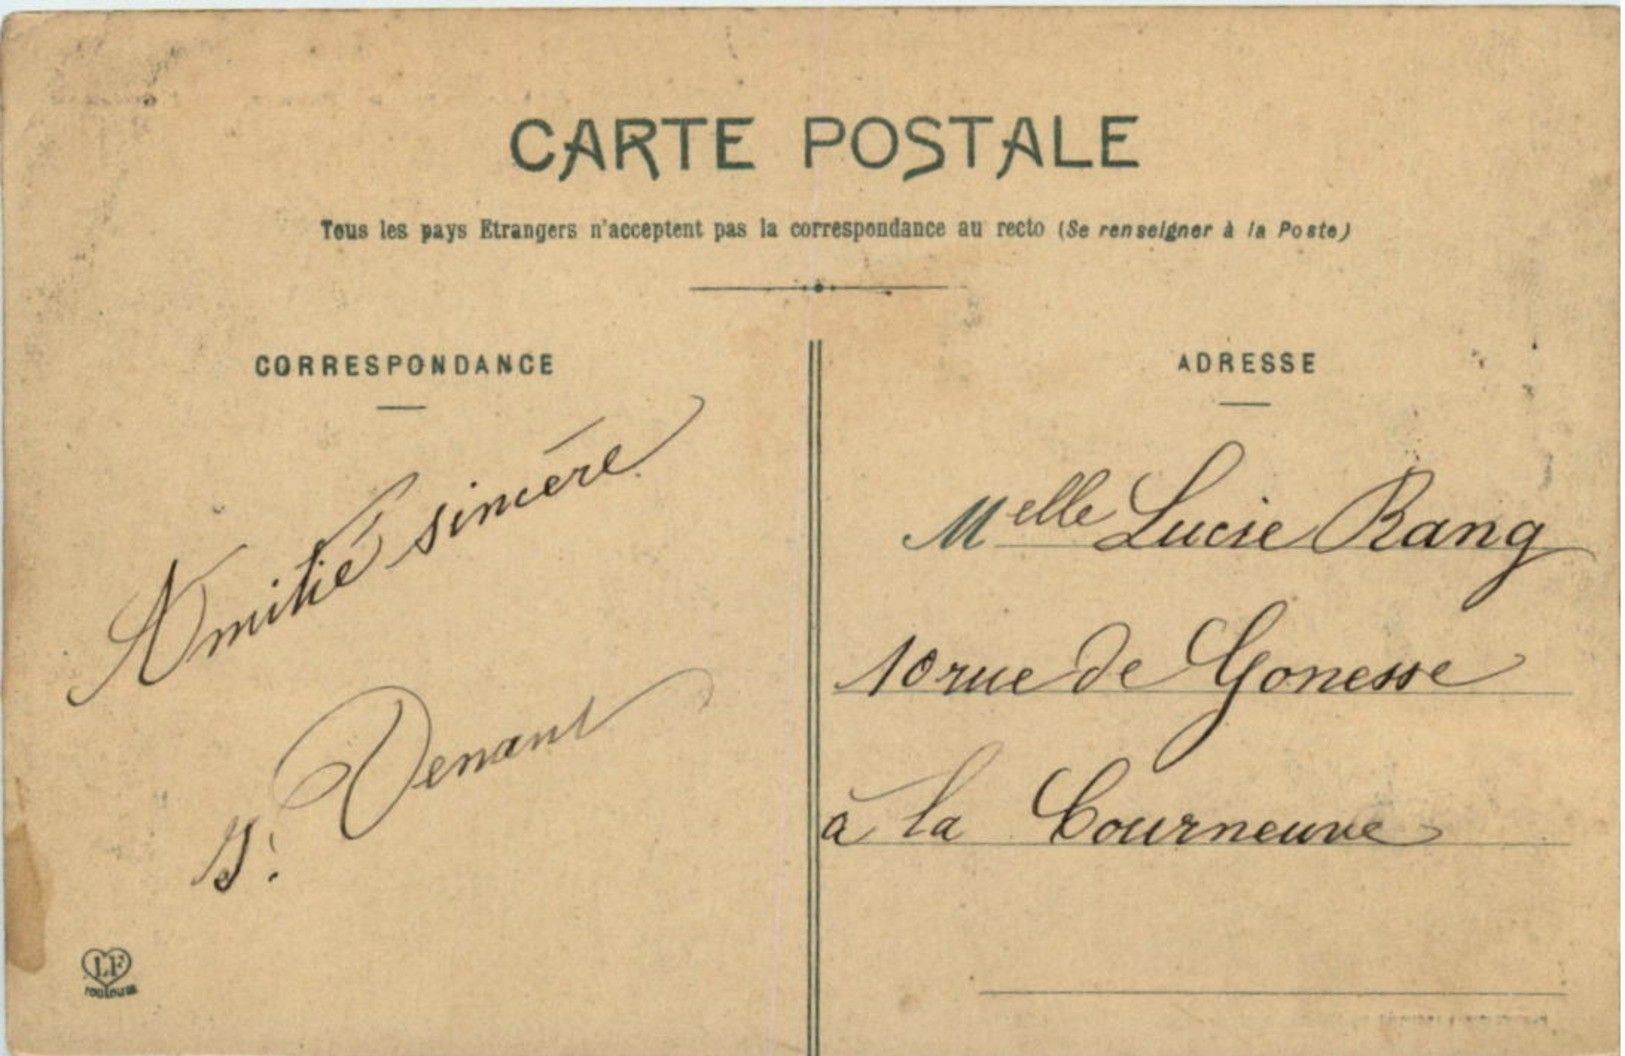 CARTE POSTALE
Tous les pays Etrangers n'acceptent pas la correspondance au recto (Se renseigner à la Poste)
CORRESPONDANCE
Amitié sincère
Denant
ADRESSE
Melle Lucie Rang
10 rue de Gonesse
à la Courneuve
LF